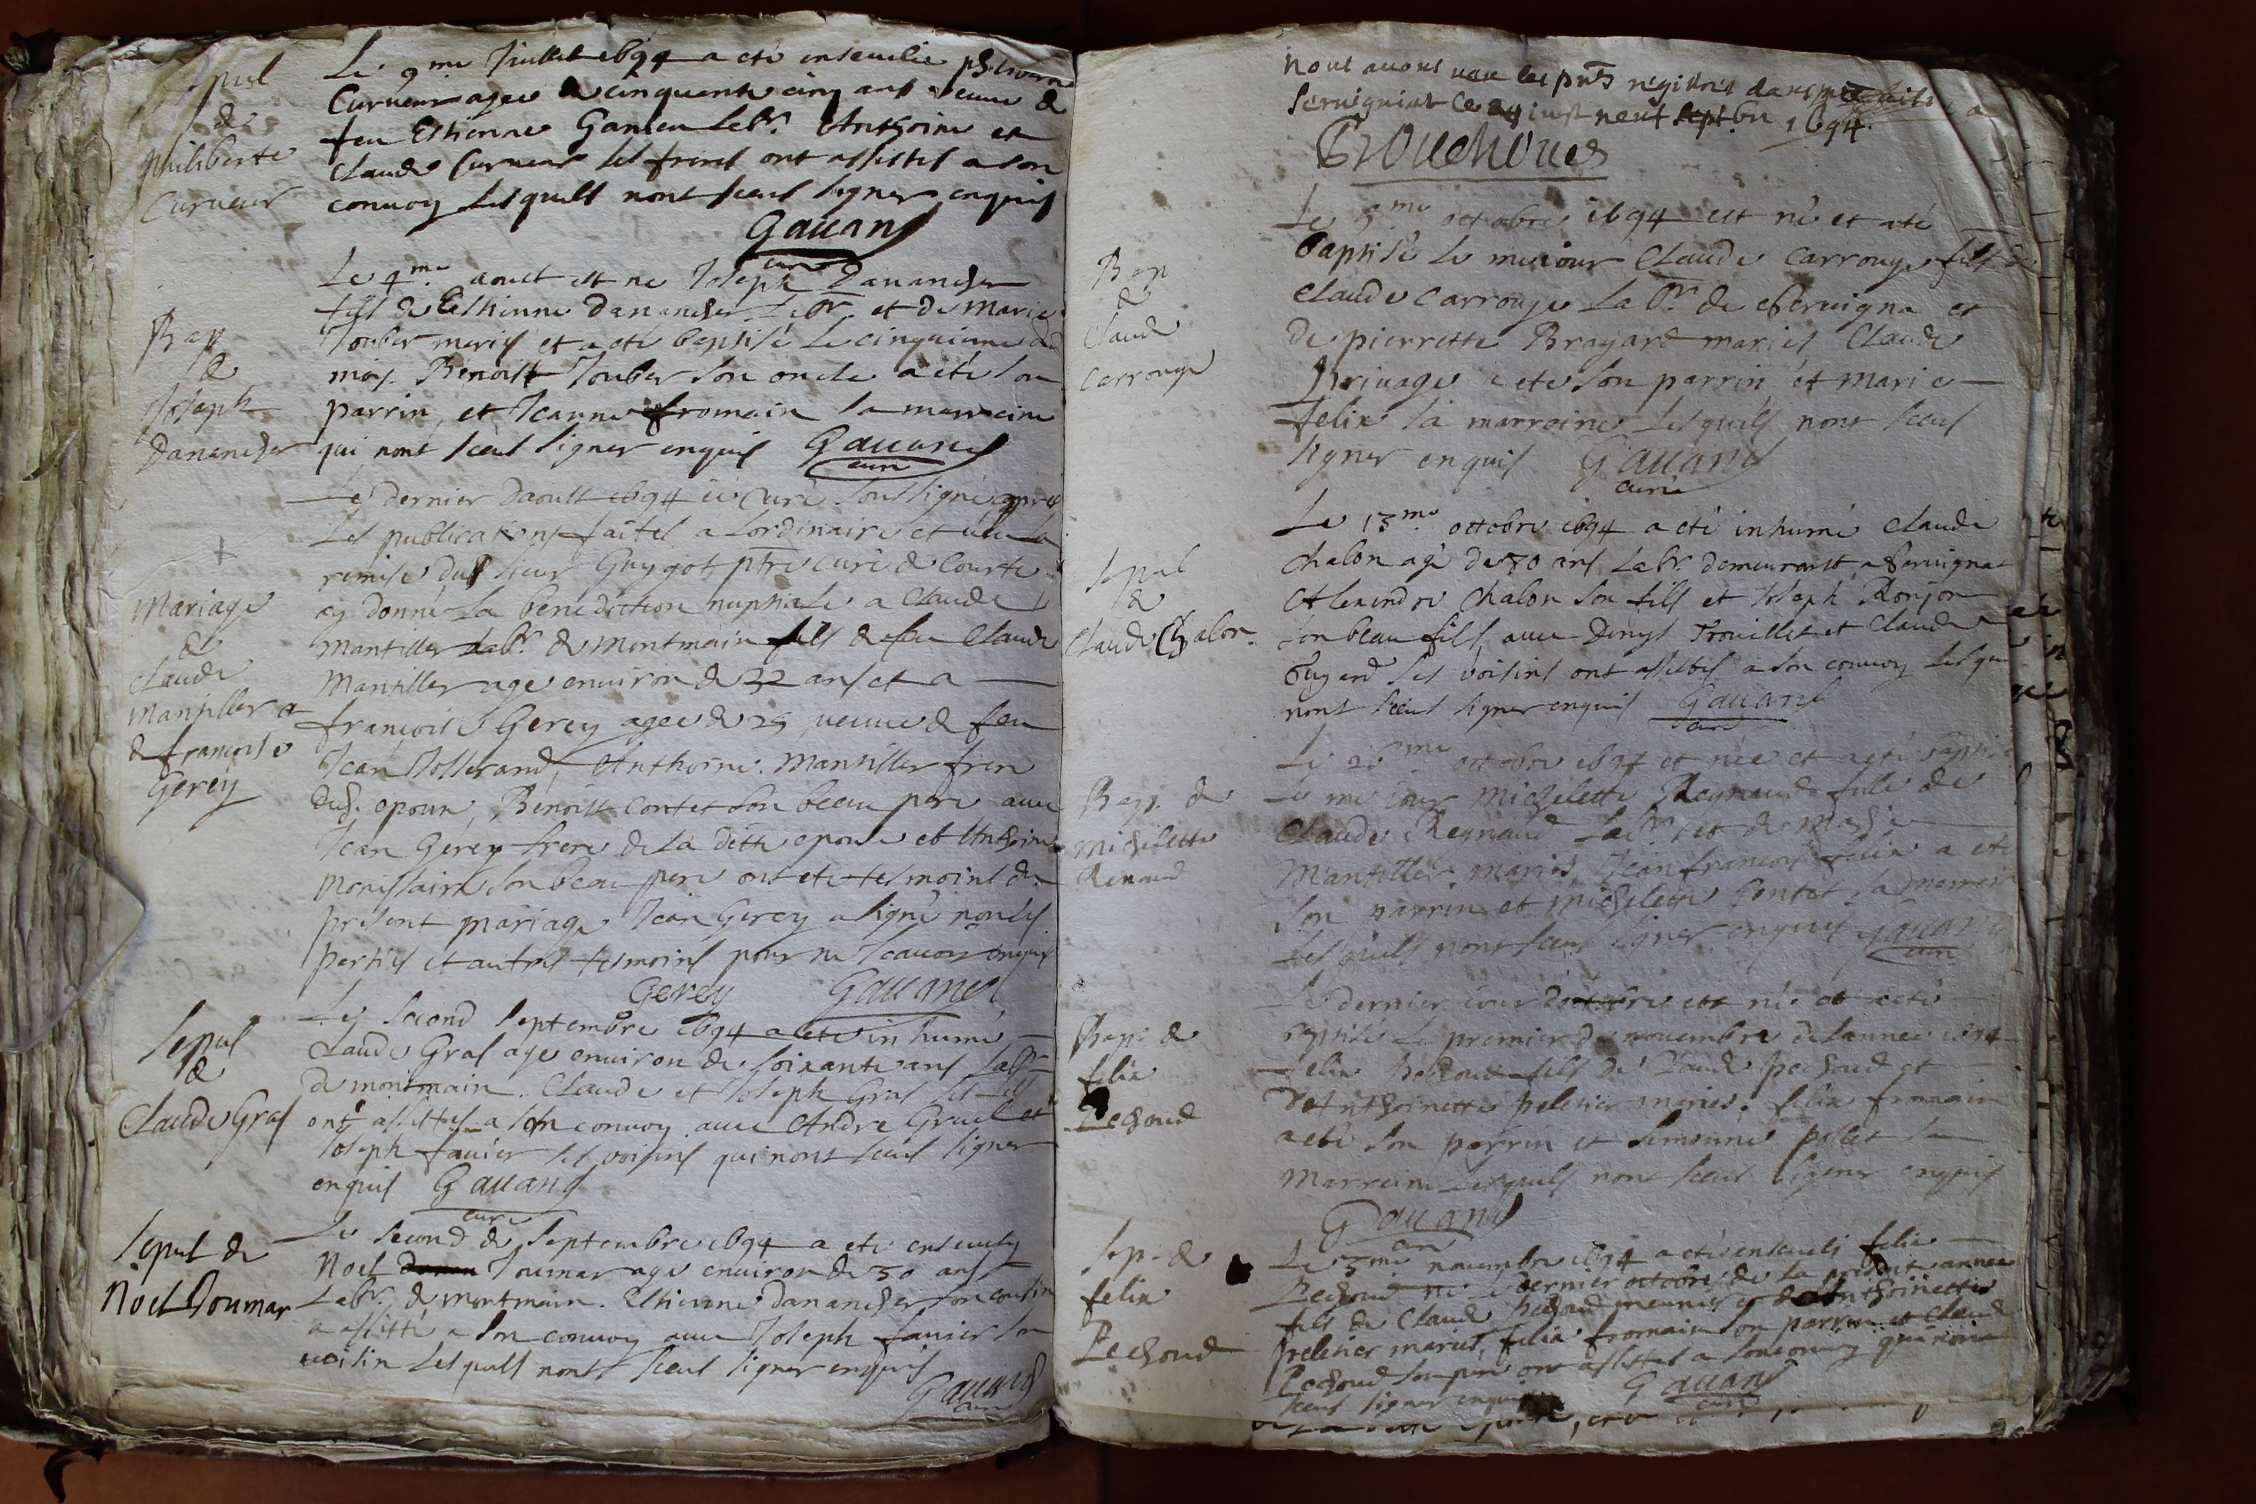 Sepul
de
philiberte
Curveur
Le 9me Juillet 1694 a ete ensevelie philiberte
Curveur agee de cinquente cinq ans veuve de
feu Esthienne Lebr. Anthoine et
Claude Curveur ses freres ont assistes a son
convoy lesquels nont sceus signer enquis
Gauand
curé
Bap
de
Joseph
Danancher
Le 4me aoust est ne Joseph Danancher
fils de Esthienne Danancher Lebr. et de Marie
Joubert maries et a ete baptisé le cinquiesme du
mois. Benoist Joubert son oncle a eté son
parrin, et Jeanne fromain sa marreine
qui nont sceus signer enquis Gauand
curé
Mariage
de
Claude
Mantiller et
de françoise
Gerey
Le dernier Daoust 1694 ie curé soussigné apres
les publications faites a lordinaire et
remise du sieur Guygot ptre curé de Courte
ay donné la bénédiction nuptiale a Claude
Mantiller Labr. de Montmain fils de feu Claude
Mantiller age environ de 32 ans et a
françoise Gerey agee de 25 veuve de feu
Jean Jollerand, Anthoine Mantiller frere
dud. epoux, Benoist Contet son beau pere avec
Jean Gerey frere de la ditte epouse et Anthoine
son beau pere ont ete tesmoins du
present mariage Jean Gerey a signé non les
parties et autres tesmoins pour ne scavoir enquis
Gerey Gauand
Sepul
de
Claude Gras
Le second Septembre 1694 a ete inhumé
Claude Gras age environ de soixante ans labr
de montmain. Claude et Joseph Gras ses fils
ont assistes a son convoy avec Andre et
Joseph favier ses voisins qui nont sceus signer
enquis Gauand
curé
Sepul de
Noel Joumar
Le second de Septembre 1694 a ete ensevely
Noel Joumar age environ de 50 ans
Labr. de montmain. Esthienne Danancher son cousin
a assisté a son convoy avec Joseph favier son
voisin lesquels nont sceus signer enquis
Gauand
curé
Nous avons veu les pnts registres dans
Servignat ce neuf septbre 1694.
Bap
de
Claude
Carrouge
Le 5me octobre 1694 est né et a été
baptisé le mesiour Claude Carrouge fils de
Claude Carrouge Labr. de chervigna et
de pierrette Brayard maries Claude
privage a ete son parrin et marie
felix sa marroine lesquels nont sceus
signer enquis Gauand
curé
Sepul
de
Claude Chalon.
Le 13me octobre 1694 a été inhumé Claude
Chalon agé de 70 ans Labr. demeurant a Servignat
Alexandre Chalon son fils et Joseph Ronjon
son beau fils, avec Denys Trouillet et Claude
ses voisins ont assistes a son convoy lesquels
nont sceus signer enquis Gauand
curé
Bap. de
Michelette
Renaud
octobre 1694 et née et a eté baptisée
le me iour Michelette Reynaud fille de
Claude Reynaud Labr. et de
Mantiller maries Jean francois felix a ete
son parrin et michelette Contet sa marreine
lesquels nont sceus signer enquis Gauand
curé
Bap. de
felix
Pechoud
Le dernier iour d'octobre est né et a eté
baptisé le premier de novembre de lannee 1694
felix pechoud fils de Claude pechoud et
d'Anthoinette peletier maries. felix fromain
a eté son parrin et Simonne pollet sa
marreine lesquels nont sceus signer enquis
Gauand
curé
Sep. de
felix
Pechoud
Le 5me novembre 1694 a été enseveli felix
Pechoud né le dernier octobre de la presente annee
fils de Claude pechoud meunier et de Anthoinette
peletier maries, felix fromain son parrin et Claude
Pechoud son pere ont assistes a son convoy qui nont
sceus signer enquis Gauand
curé